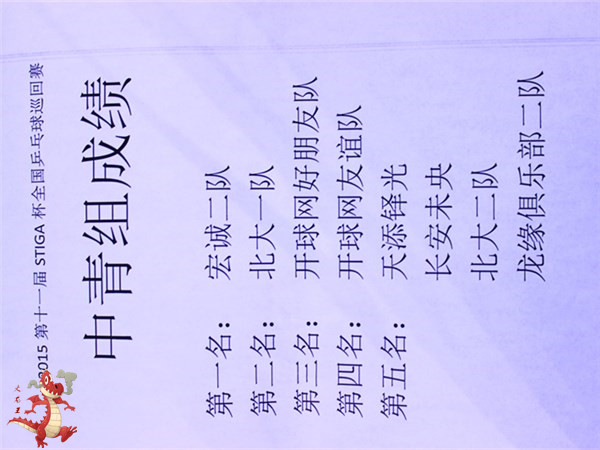 2015 第十一届 STIGA 杯全国乒乓球巡回赛
中青组成绩
第一名： 宏诚二队
第二名： 北大一队
第三名： 开球网好朋友队
第四名： 开球网友谊队
第五名： 天添铎光
长安未央
北大二队
龙缘俱乐部二队